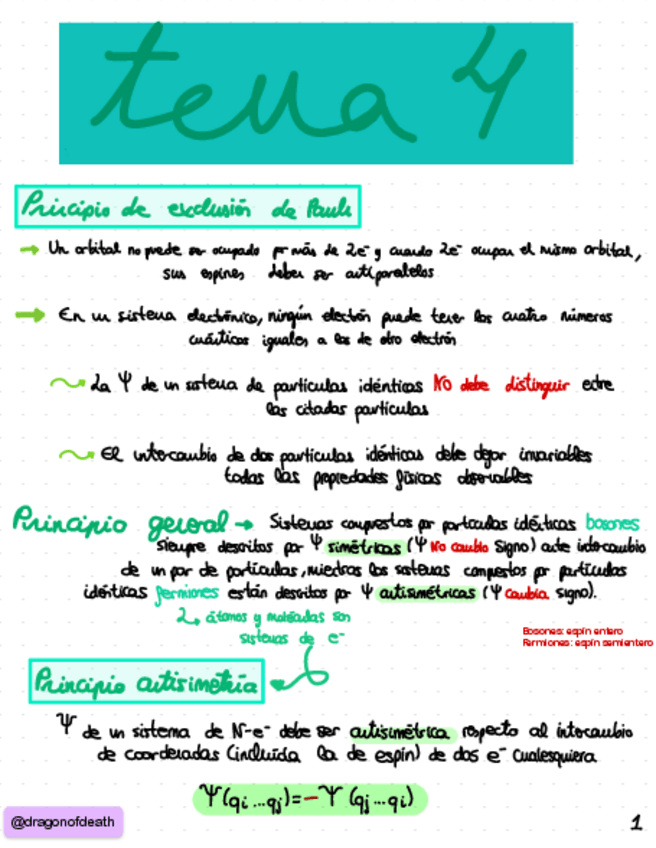 tema 4
Principio de exclusión de Pauli
→ Un orbital no puede ser ocupado por más de 2e⁻ y cuando 2e⁻ ocupan el mismo orbital,
sus espines deben ser antiparalelos
→ En un sistema electrónico, ningún electrón puede tener los cuatro números
cuánticos iguales a los de otro electrón
La Ψ de un sistema de partículas idénticas NO debe distinguir entre
las citadas partículas
El intercambio de dos partículas idénticas debe dejar invariables
todas las propiedades físicas observables
Principio general → Sistemas compuestos por partículas idénticas bosones
siempre descritos por Ψ simétricas (Ψ No cambia signo) ante intercambio
de un par de partículas, mientras los sistemas compuestos por partículas
idénticas fermiones están descritos por Ψ antisimétricas (Ψ cambia signo).
↳ átomos y moléculas son
sistemas de e⁻
Bosones: espín entero
Fermiones: espín semientero
Principio antisimetría
Ψ de un sistema de N-e⁻ debe ser antisimétrica respecto al intercambio
de coordenadas (incluida la de espín) de dos e⁻ cualesquiera
Ψ(qi...qj)=-Ψ(qj...qi)
@dragonofdeath
1